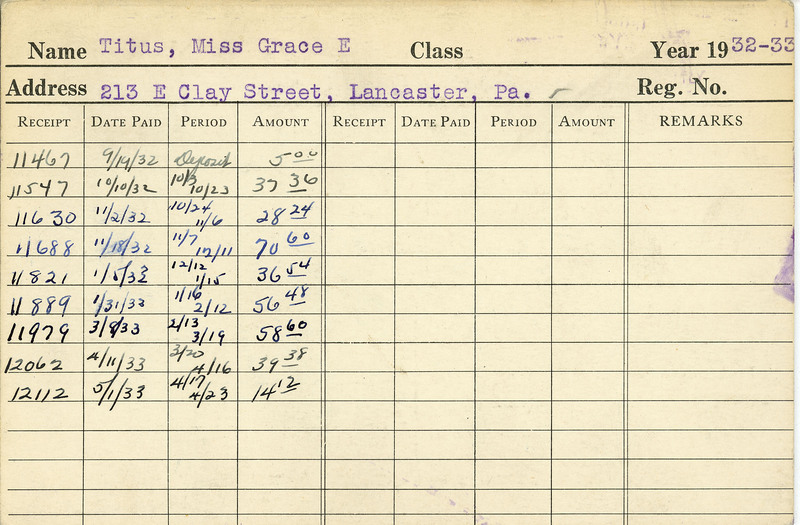 Name Titus, Miss Grace E Class Year 1932-33
Address 213 E Clay Street, Lancaster, Pa. Reg. No.
RECEIPT DATE PAID PERIOD AMOUNT RECEIPT DATE PAID PERIOD AMOUNT REMARKS
11467 9/19/32 Deposit 5 00
11547 10/10/32 10/3 10/23 37 36
11630 11/2/32 10/24 11/6 28 24
11688 11/18/32 11/7 12/11 70 60
11821 1/5/33 12/12 1/15 36 54
11889 1/31/33 1/16 2/12 56 48
11979 3/8/33 2/13 3/19 58 60
12062 4/11/33 3/20 4/16 39 38
12112 5/1/33 4/17 4/23 14 12